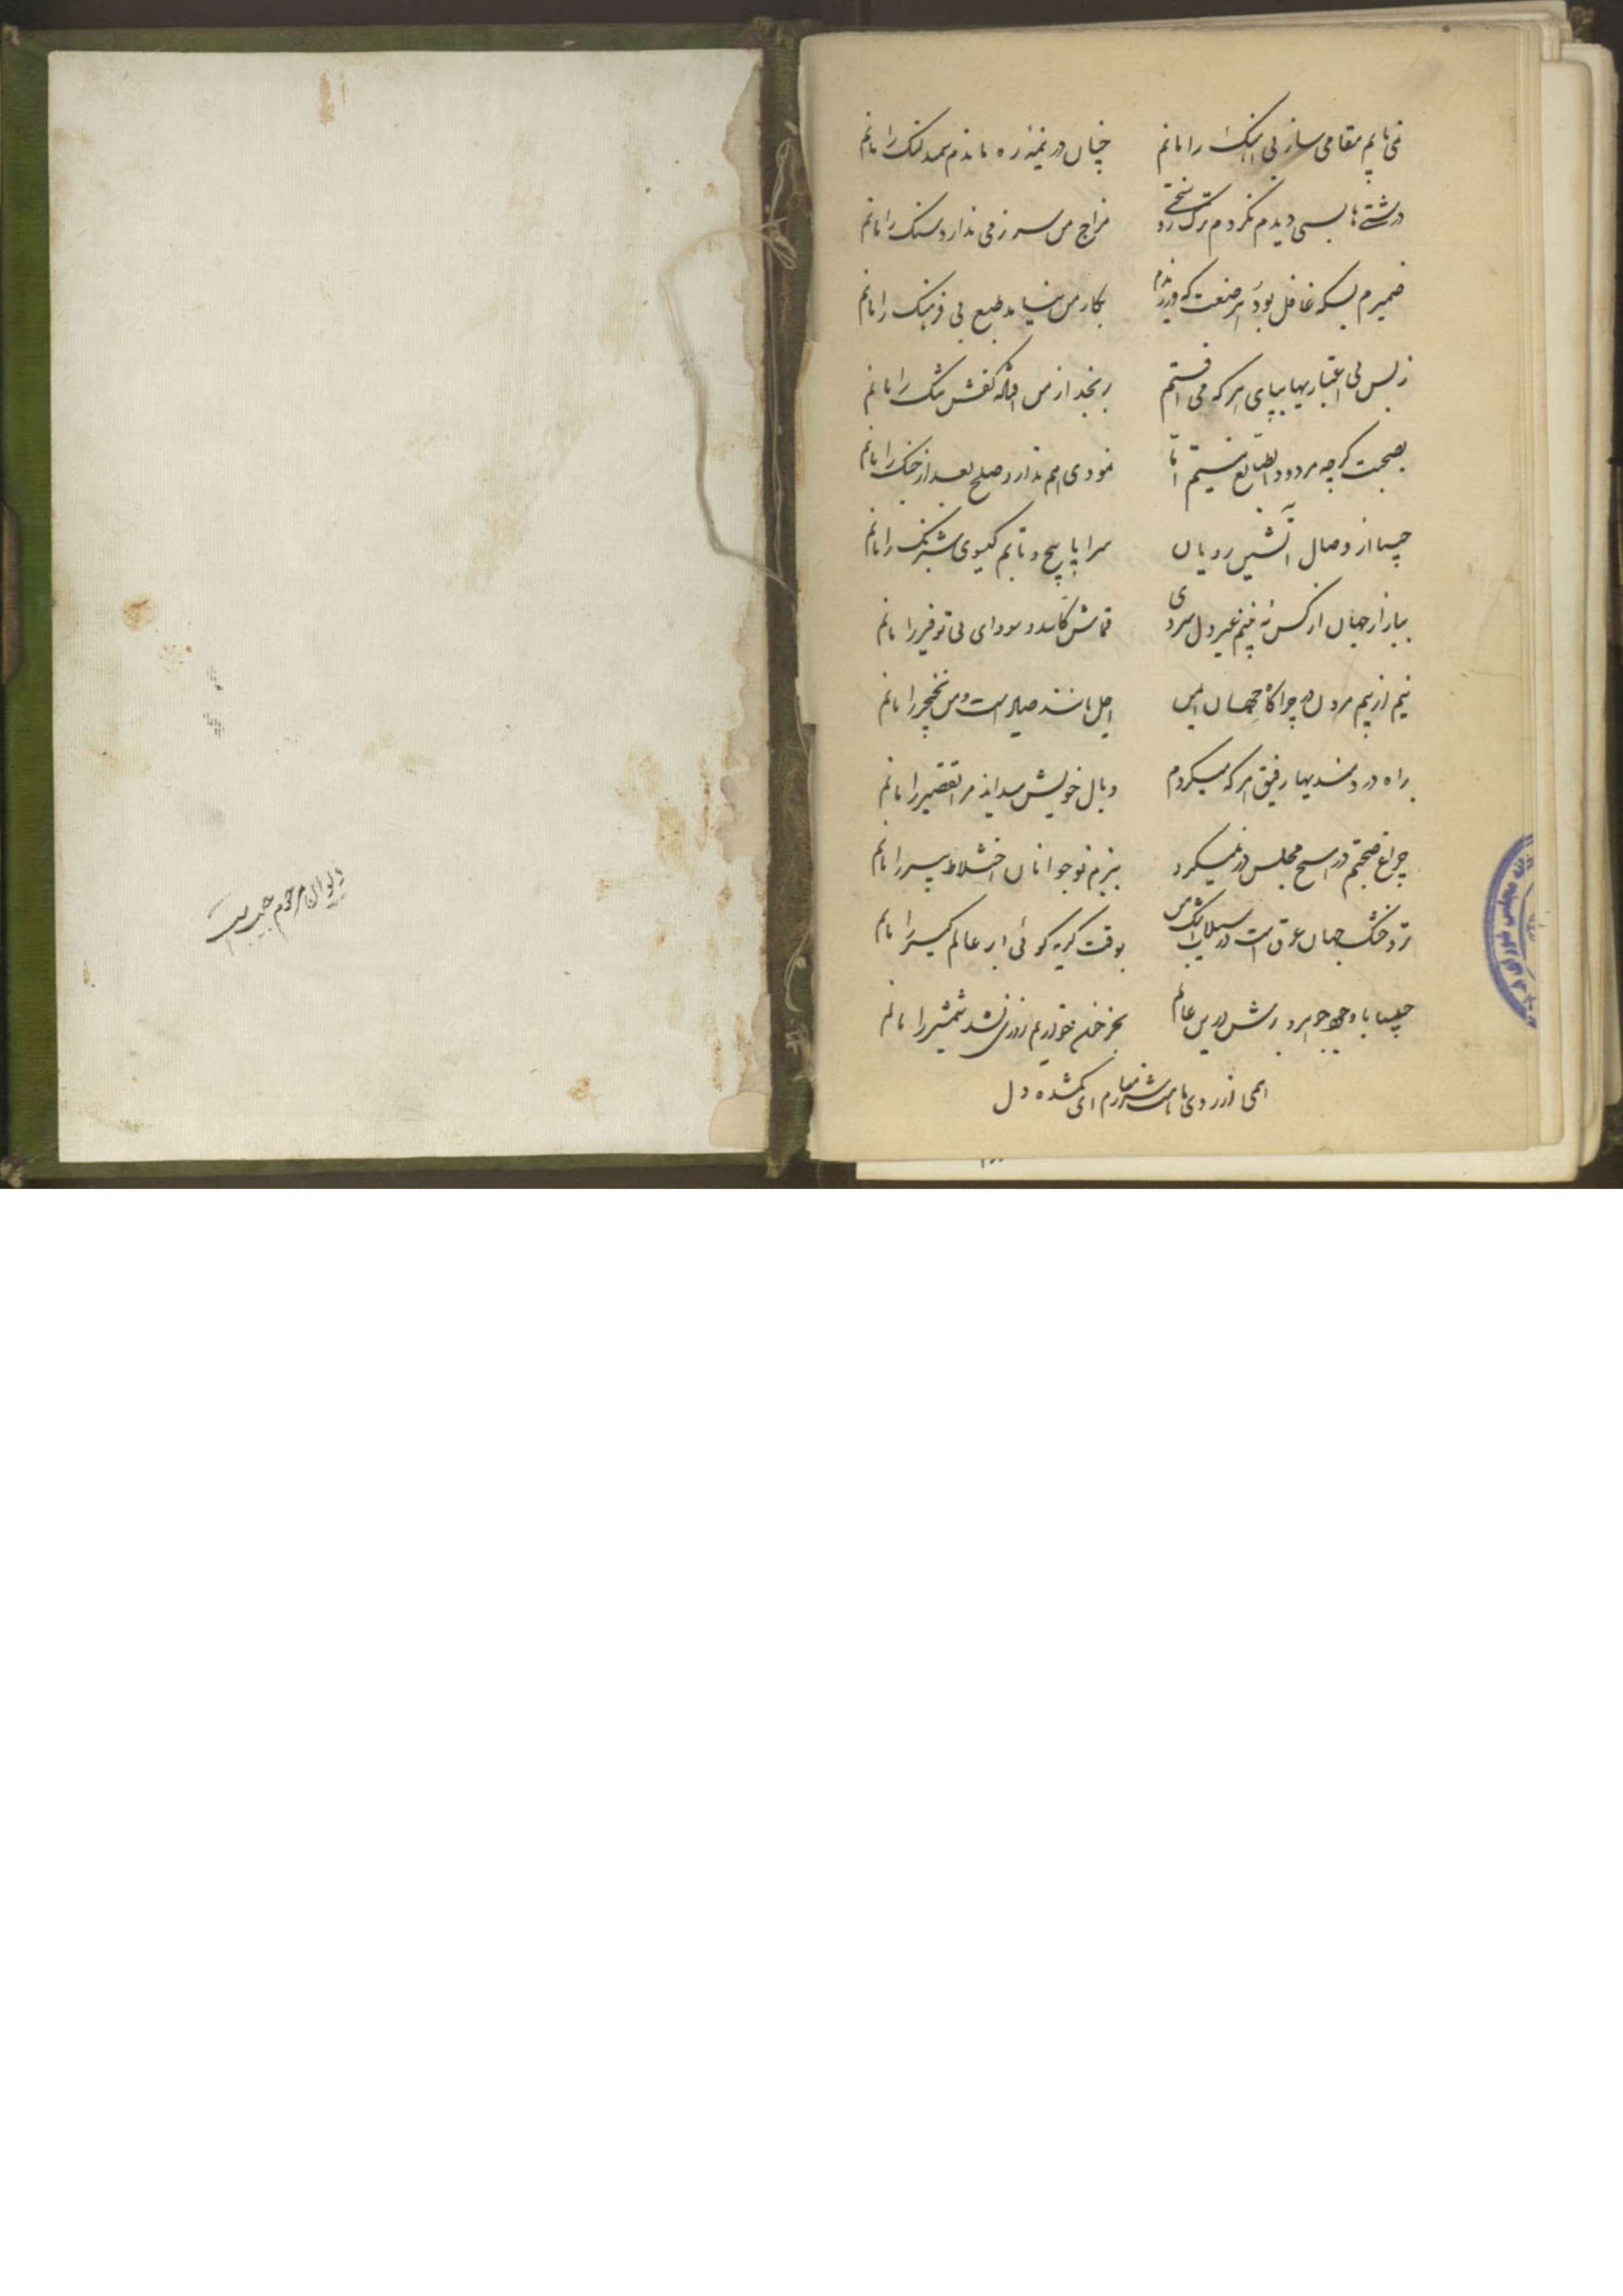 نمی یابم مقامی ساز بی آهنگ را مانم چنان در نیمهٔ ره ماندم سمند لنگ را مانم
درشتی‌ها بسی دیدم نکردم ترک سختی رو مزاج من سر نرمی ندارد سنگ را مانم
ضمیرم بسکه غافل بود هر صنعت که ورزیدم بکار من نیامد طبع بی فرهنگ را مانم
ز بس بی اعتباریها بپای هر که می افتم برنجد از من آنگه کفش تنگ را مانم
بصحبت گرچه مردود طبایع نیستم اما نمودی هم ندارد صلح بعد از جنگ را مانم
از وصال آتشین رویان سراپا پیچ و تابم گیسوی شبرنگ را مانم
ببازار جهان از کس نه بینم غیر دل سردی قماش کاسد و سودای بی توفیر را مانم
نیم از بیم مردن در چراگاه جهان ایمن اجل مانند صیاد است و من نخچیر را مانم
براه دردمندیها رفیق هر که میگردم وبال خویش میداند مرا تقصیر را مانم
چراغ صحبتم در هیچ مجلس در نمیگیرد ببزم نوجوانان اختلاط پیر را مانم
تر و خشک جهان غرق است در سیلاب اشک من بوقت گریه گوئی ابر عالم گیر را مانم
با وجود جوهر و برش درین عالم بجز خون خوردنم روزی نشد شمشیر را مانم
ای از روی شرمسارم ای گمشده دل
دیوان مرحوم